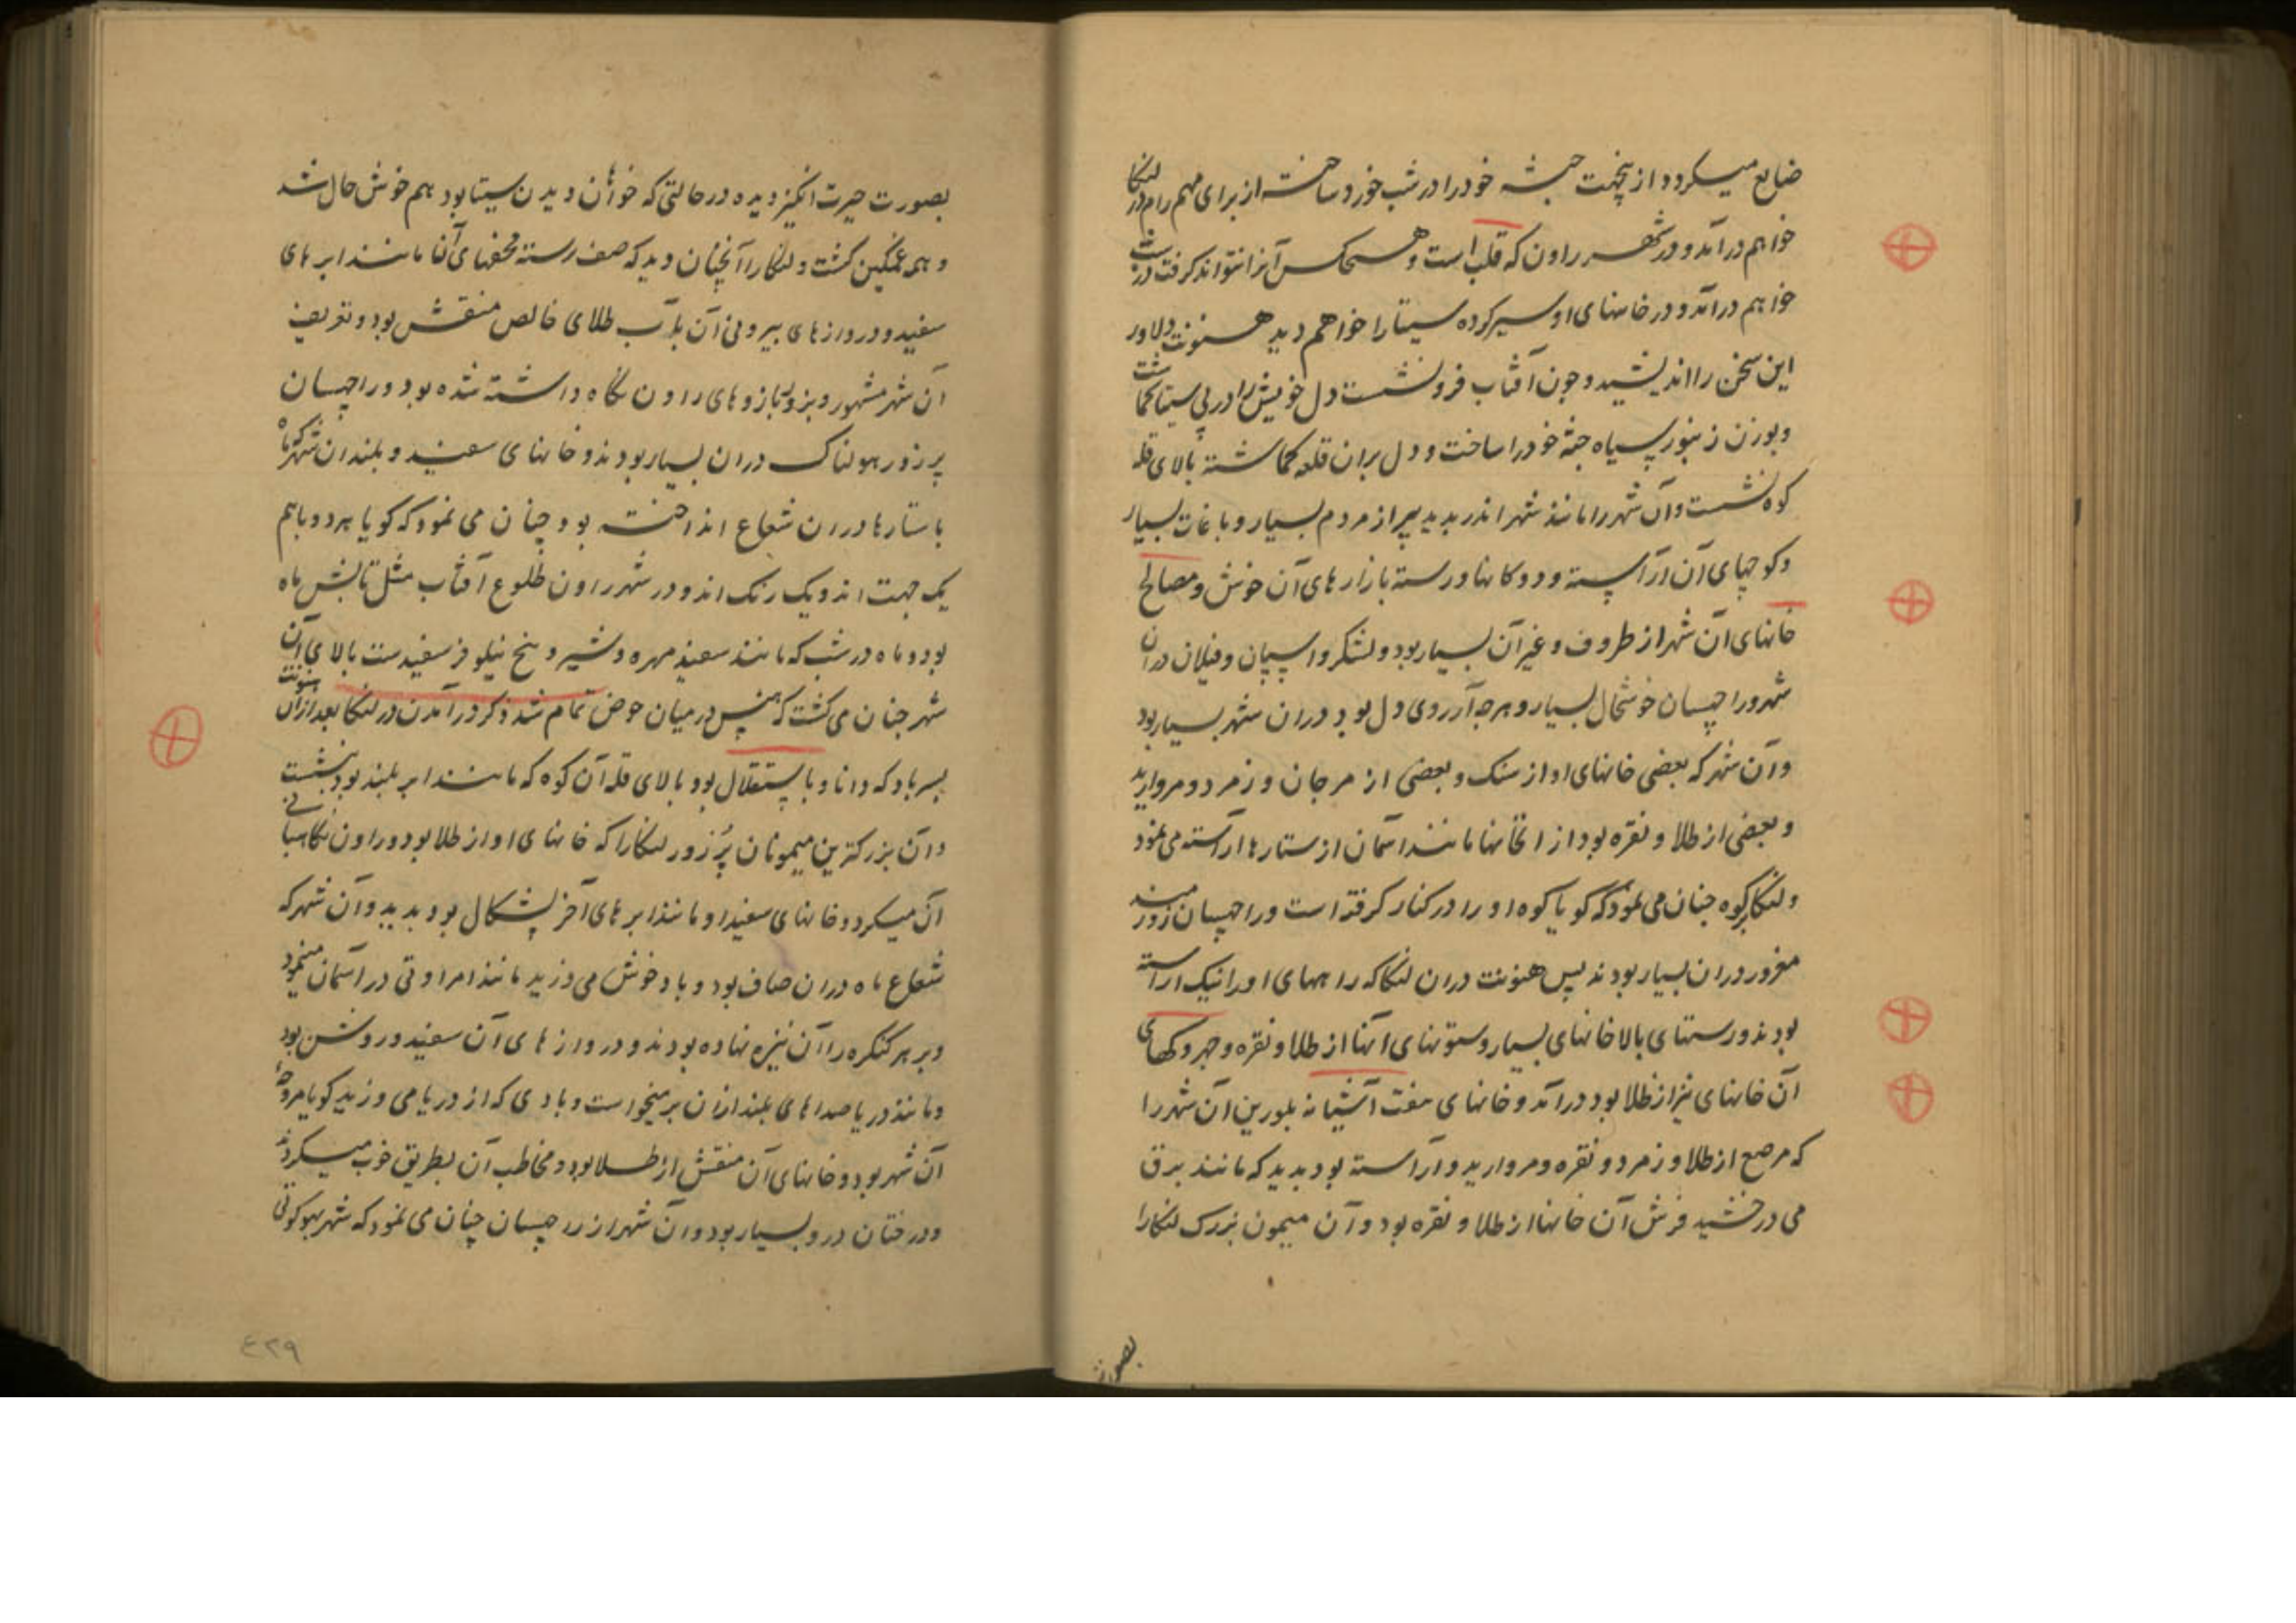 ضایع میکردد از ینجهت جثه خود را در شب خورد ساخته از برای مهم رام در لنکا
خواهم درآمد و در شهر راون که قلب است و هیچکس آنرا نتواند کرفت در شب
خواهم درآمد و در خانهای او سیر کرده سیتا را خواهم دید هنونت دلاور
این سخن را اندیشید و چون آفتاب فرو نشست دل خویش را در پی سیتا کماشت
و بوزن زنبور سیاه جثه خود را ساخت و دل بران قلعه کماشته بالای قله
کوه نشست و آن شهر را مانند شهر اندر بدید پر از مردم بسیار و باغات بسیار
و کوچهای آن آراسته و دوکانها و رسته بازارهای آن خوش و مصالح
خانهای آن شهر از ظروف و غیر آن بسیار بود و لشکر و اسپان و فیلان دران
شهر و راچهسان خوشحال بسیار و هر چه آرزوی دل بود دران شهر بسیار بود
و آن شهر که بعضی خانهای او از سنک و بعضی از مرجان و زمرد و مروارید
و بعضی از طلا و نقره بود از انخانها مانند آسمان از ستارها آراسته می نمود
و لنکا بر کوه چنان می نمود که کویا کوه او را در کنار کرفته است و راچهسان زورمند
مغرور دران بسیار بودند پس هنونت دران لنکا که راههای او را نیک آراسته
بودند و رستهای بالاخانهای بسیار و ستونهای آنها از طلا و نقره و جهروکهای
آن خانهای نیز از طلا بود درآمد و خانهای هفت آشیانه بلورین آن شهر را
که مرصع از طلا و زمرد و نقره و مروارید و آراسته بود بدید که مانند برق
می درخشید فرش آن خانها از طلا و نقره بود و آن میمون بزرک لنکا را
بصورت
بصورت حیرت انکیز دیده در حالتی که خواهان دیدن سیتا بود هم خوش حال شد
و هم غمکین کشت و لنکا را آنچنان دید که صف رسته محفهای آنها مانند ابرهای
سفید و دروازهای بیرونی آن بآب طلای خالص منقش بود و تعریف
آن شهر مشهور و بزور بازوهای راون نکاه داشته شده بود و راچهسان
پر زور هولناک دران بسیار بودند و خانهای سفید و بلند آن شهر که ماه
با ستارها دران شعاع انداخته بود چنان می نمود که کویا هر دو باهم
یک جهت اند و یک رنک اند و در شهر راون طلوع آفتاب مثل تابش ماه
بود و ماه در شب که مانند سفید مهره و شیر و بیخ نیلوفر سفیدست بالای آن
شهر چنان می کشت که هنس در میان حوض تمام شد ذکر درآمدن در لنکا بعد ازان هنونت
پسر باد که دانا و با استقلال بود بالای قله آن کوه که مانند ابر بلند بود بنشست
و آن بزرکترین میمونان پُر زور لنکا را که خانهای او از طلا بود و راون نکاهبانی
آن میکرد و خانهای سفید او مانند ابرهای آخر پشکال بود بدید و آن شهر که
شعاع ماه دران صاف بود و باد خوش می وزید مانند امراوتی در آسمان مینمود
و بر هر کنکره را آن نیزه نهاده بودند و دروازهای آن سفید و روشن بود
و مانند دریا صداهای بلند ازان برمیخواست و بادی که از دریا می وزید کویا مروحه
آن شهر بود و خانهای آن منقش از طلا بود و مخاطب آن بطریق خوب میکردند
و درختان درو بسیار بود و آن شهر از راچهسان چنان می نمود که شهر بهوکوتی
٤٢٩